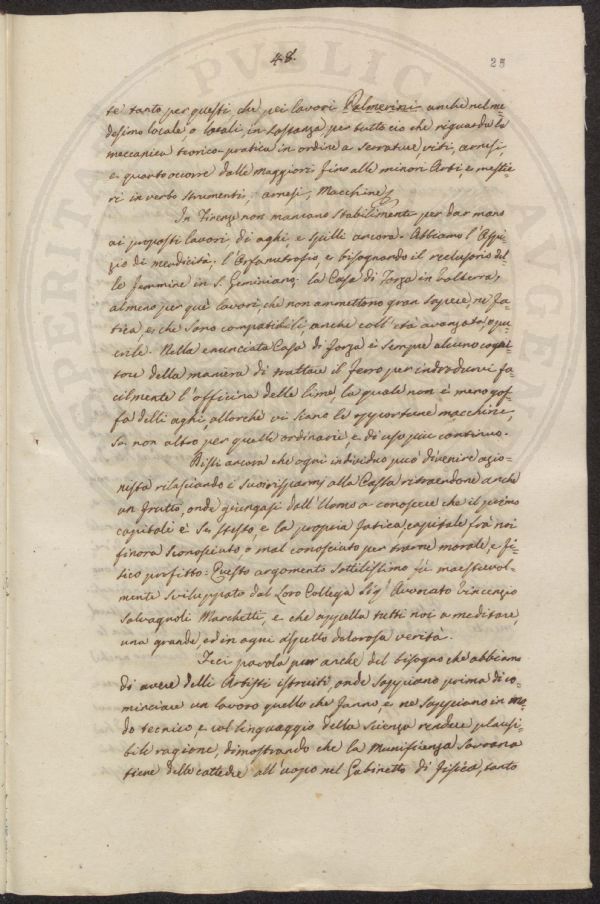 48.
25
te tanto per questi, che pei lavori Palmerini anche nel me-
desimo locale o locali, in sostanza per tutto ciò che riguarda la
meccanica teorico-pratica in ordine a serrature, viti, arnesi,
e quanto occorre dalle maggiori fino alle minori Arti, e mestie-
ri in verbo strumenti, arnesi, Macchine.
In Firenze non mancano stabilimenti per dar mano
ai proposti lavori di aghi, e spilli ancora. Abbiamo l'Ospi-
zio di mendicità; l'Orfanotrofio, e bisognando il reclusorio del-
le femmine in S. Geminiano: la Casa di Forza in Volterra,
almeno per què lavori, che non ammettono gran sapere, nè fa-
tica, e che sono compatibili, anche coll'età avanzata, o pue-
rile. Nella enunciata Casa di forza è sempre alcuno cogni-
tore della maniera di trattare il ferro per introdurvi fa-
cilmente l'officina delle lime, la quale non è meno gof-
fa delli aghi, allorchè vi siano le opportune macchine,
se non altro per quelle ordinarie, e di uso più continuo.
Dissi ancora che ogni individuo può divenire azio-
nista rilasciando i suoi risparmj alla Cassa ritraendone anche
un frutto, onde giungasi dall'Uomo a conoscere che il primo
capitale è se stesso, e la propria fatica, capitale frà noi
finora sconosciuto, o mal conosciuto per trarne morale, e fi-
sico profitto: Questo argomento sottilissimo fù maestrevol-
mente sviluppato dal Loro Collega Sig.r Avvocato Vincenzio
Salvagnoli Marchetti, e che appella tutti noi a meditare
una grande, ed in ogni aspetto dolorosa verità.
Feci parola pur anche del bisogno che abbiamo
di avere delli Artisti istruiti, onde sappiano prima di co-
minciare un lavoro quello che fanno, e ne sappiano in mo-
do tecnico, e col linguaggio della Scienza rendere plausi-
bile ragione, dimostrando che la Munificenza Sovrana
tiene delle cattedre all'uopo nel Gabinetto di fisica, tanto